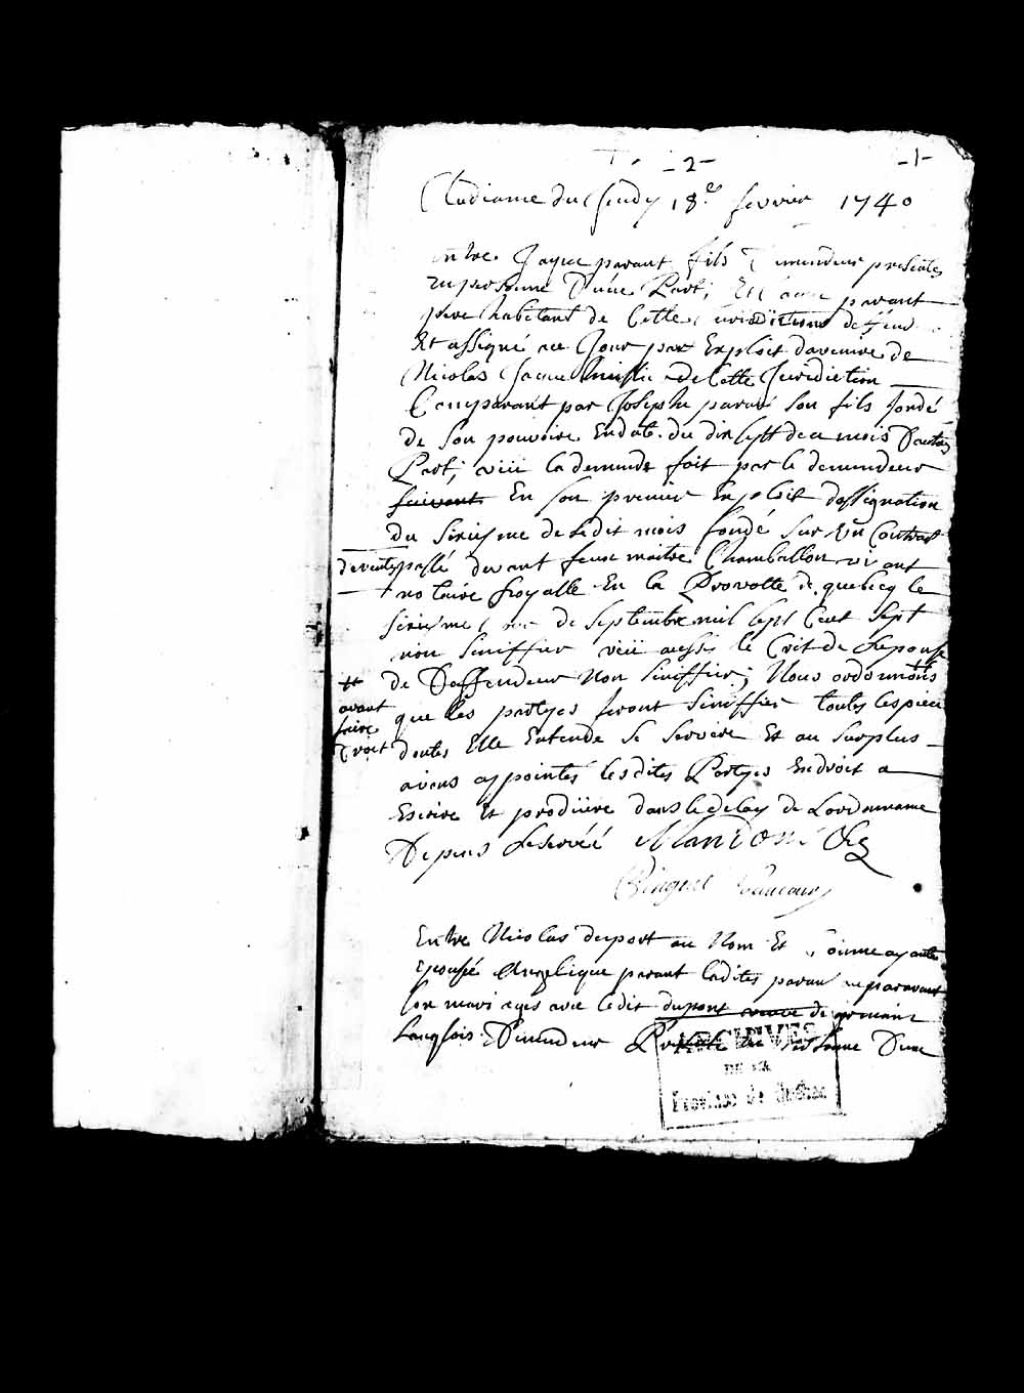 -2- -1-
Audiance du Jeudy 18.e fevrier 1740
Entre Jaque parant fils Demendeur presentes
en personne D'une Part; Et Jacque parant
pere habitant de Cette Juridiction deffend
Et assigné au Jour par Exploit davenire de
Nicolas Jacue huissie de Cette Juridiction
Comparant par Joseph parant son fils fondé
de son pouvoire En date du dix sept de ce mois D'autre
Part; viii la demande fait par le demendeur
suivant En son premier Exploit dassignation
du sixiesme de cedit mois fondé sur Un Contrat
de vente passé devant feue maitre Chamballon vivant
notaire Royalle En la Provotté de quebecq le
sixiesme de Septembre mil sept Cent Sept
non siniffier viii aussi le Crit de Reponse
# de Deffendeur Non siniffier; Nous ordonnons #
avant faire Droit
que les partyes feront siniffier toutes les piece
dontes Elle Entende se servire Et au surplus
avons appointés lesdites Partyes En droit a
Escrire Et prodüire dans le delay de Lordonnance
Depens Reservéé
Entre Nicolas dupont au Nom Et Comme ayante
Epousé Angelique parant ladites parant auparavant
son mari ages avec ledit dupont veuve de germain
Langlois Demendeur Present En Personne D'une
ARCHIVES
DE LA
Province de Québec